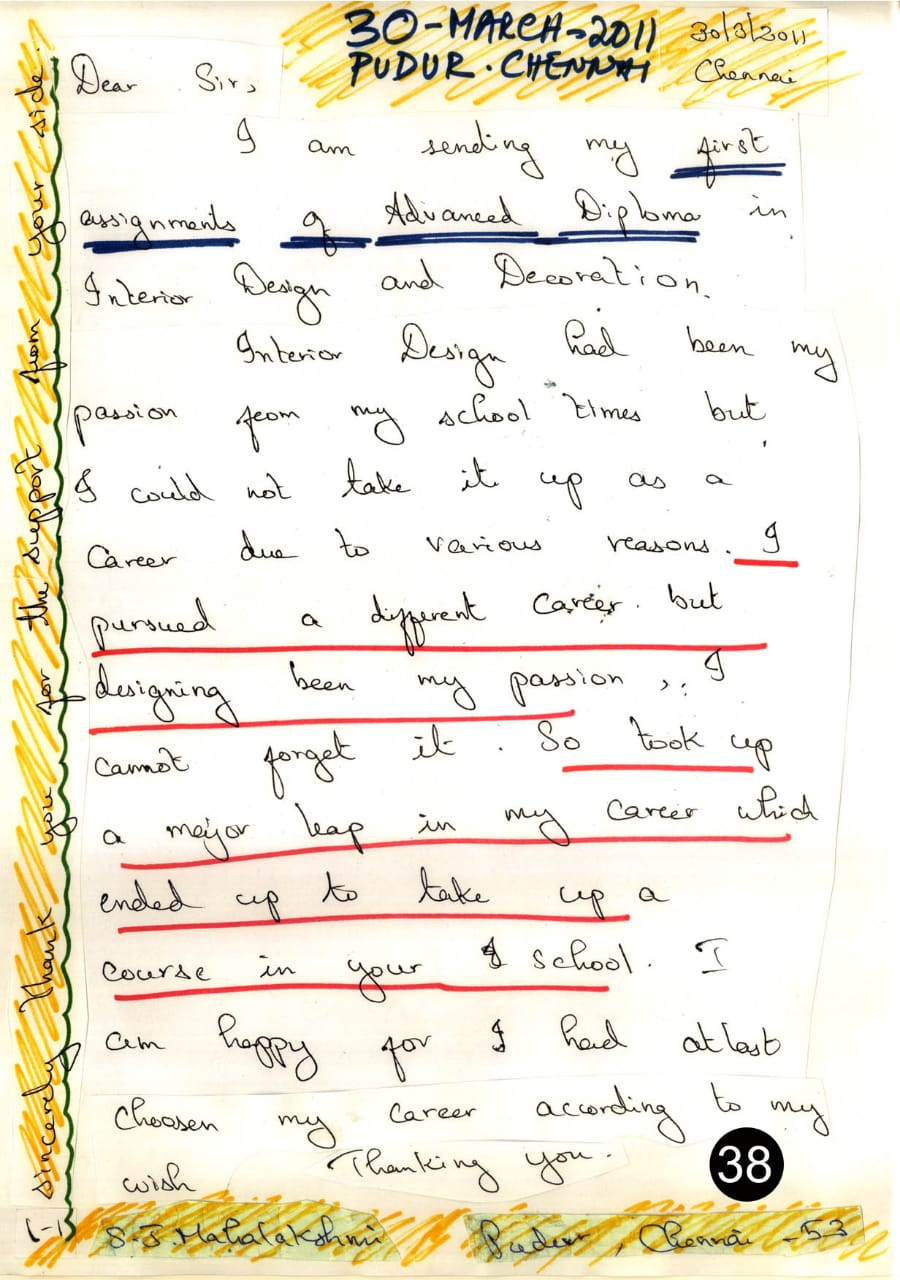 30-MARCH-2011
PUDUR. CHENNAI
30/3/2011
Chennai
Dear Sir,
I am sending my first
assignments of Advanced Diploma in
Interior Design and Decoration.
Interior Design had been my
passion from my school times but
I could not take it up as a
career due to various reasons. I
pursued a different career. but
designing been my passion, I
cannot forget it. So took up
a major leap in my career which
ended up to take up a
course in your school. I
am happy for I had atlast
choosen my career according to my
wish Thanking you.
38
S.J. Mahalakshmi Pudur, Chennai - 53
sincerely thank you for the support from your side.